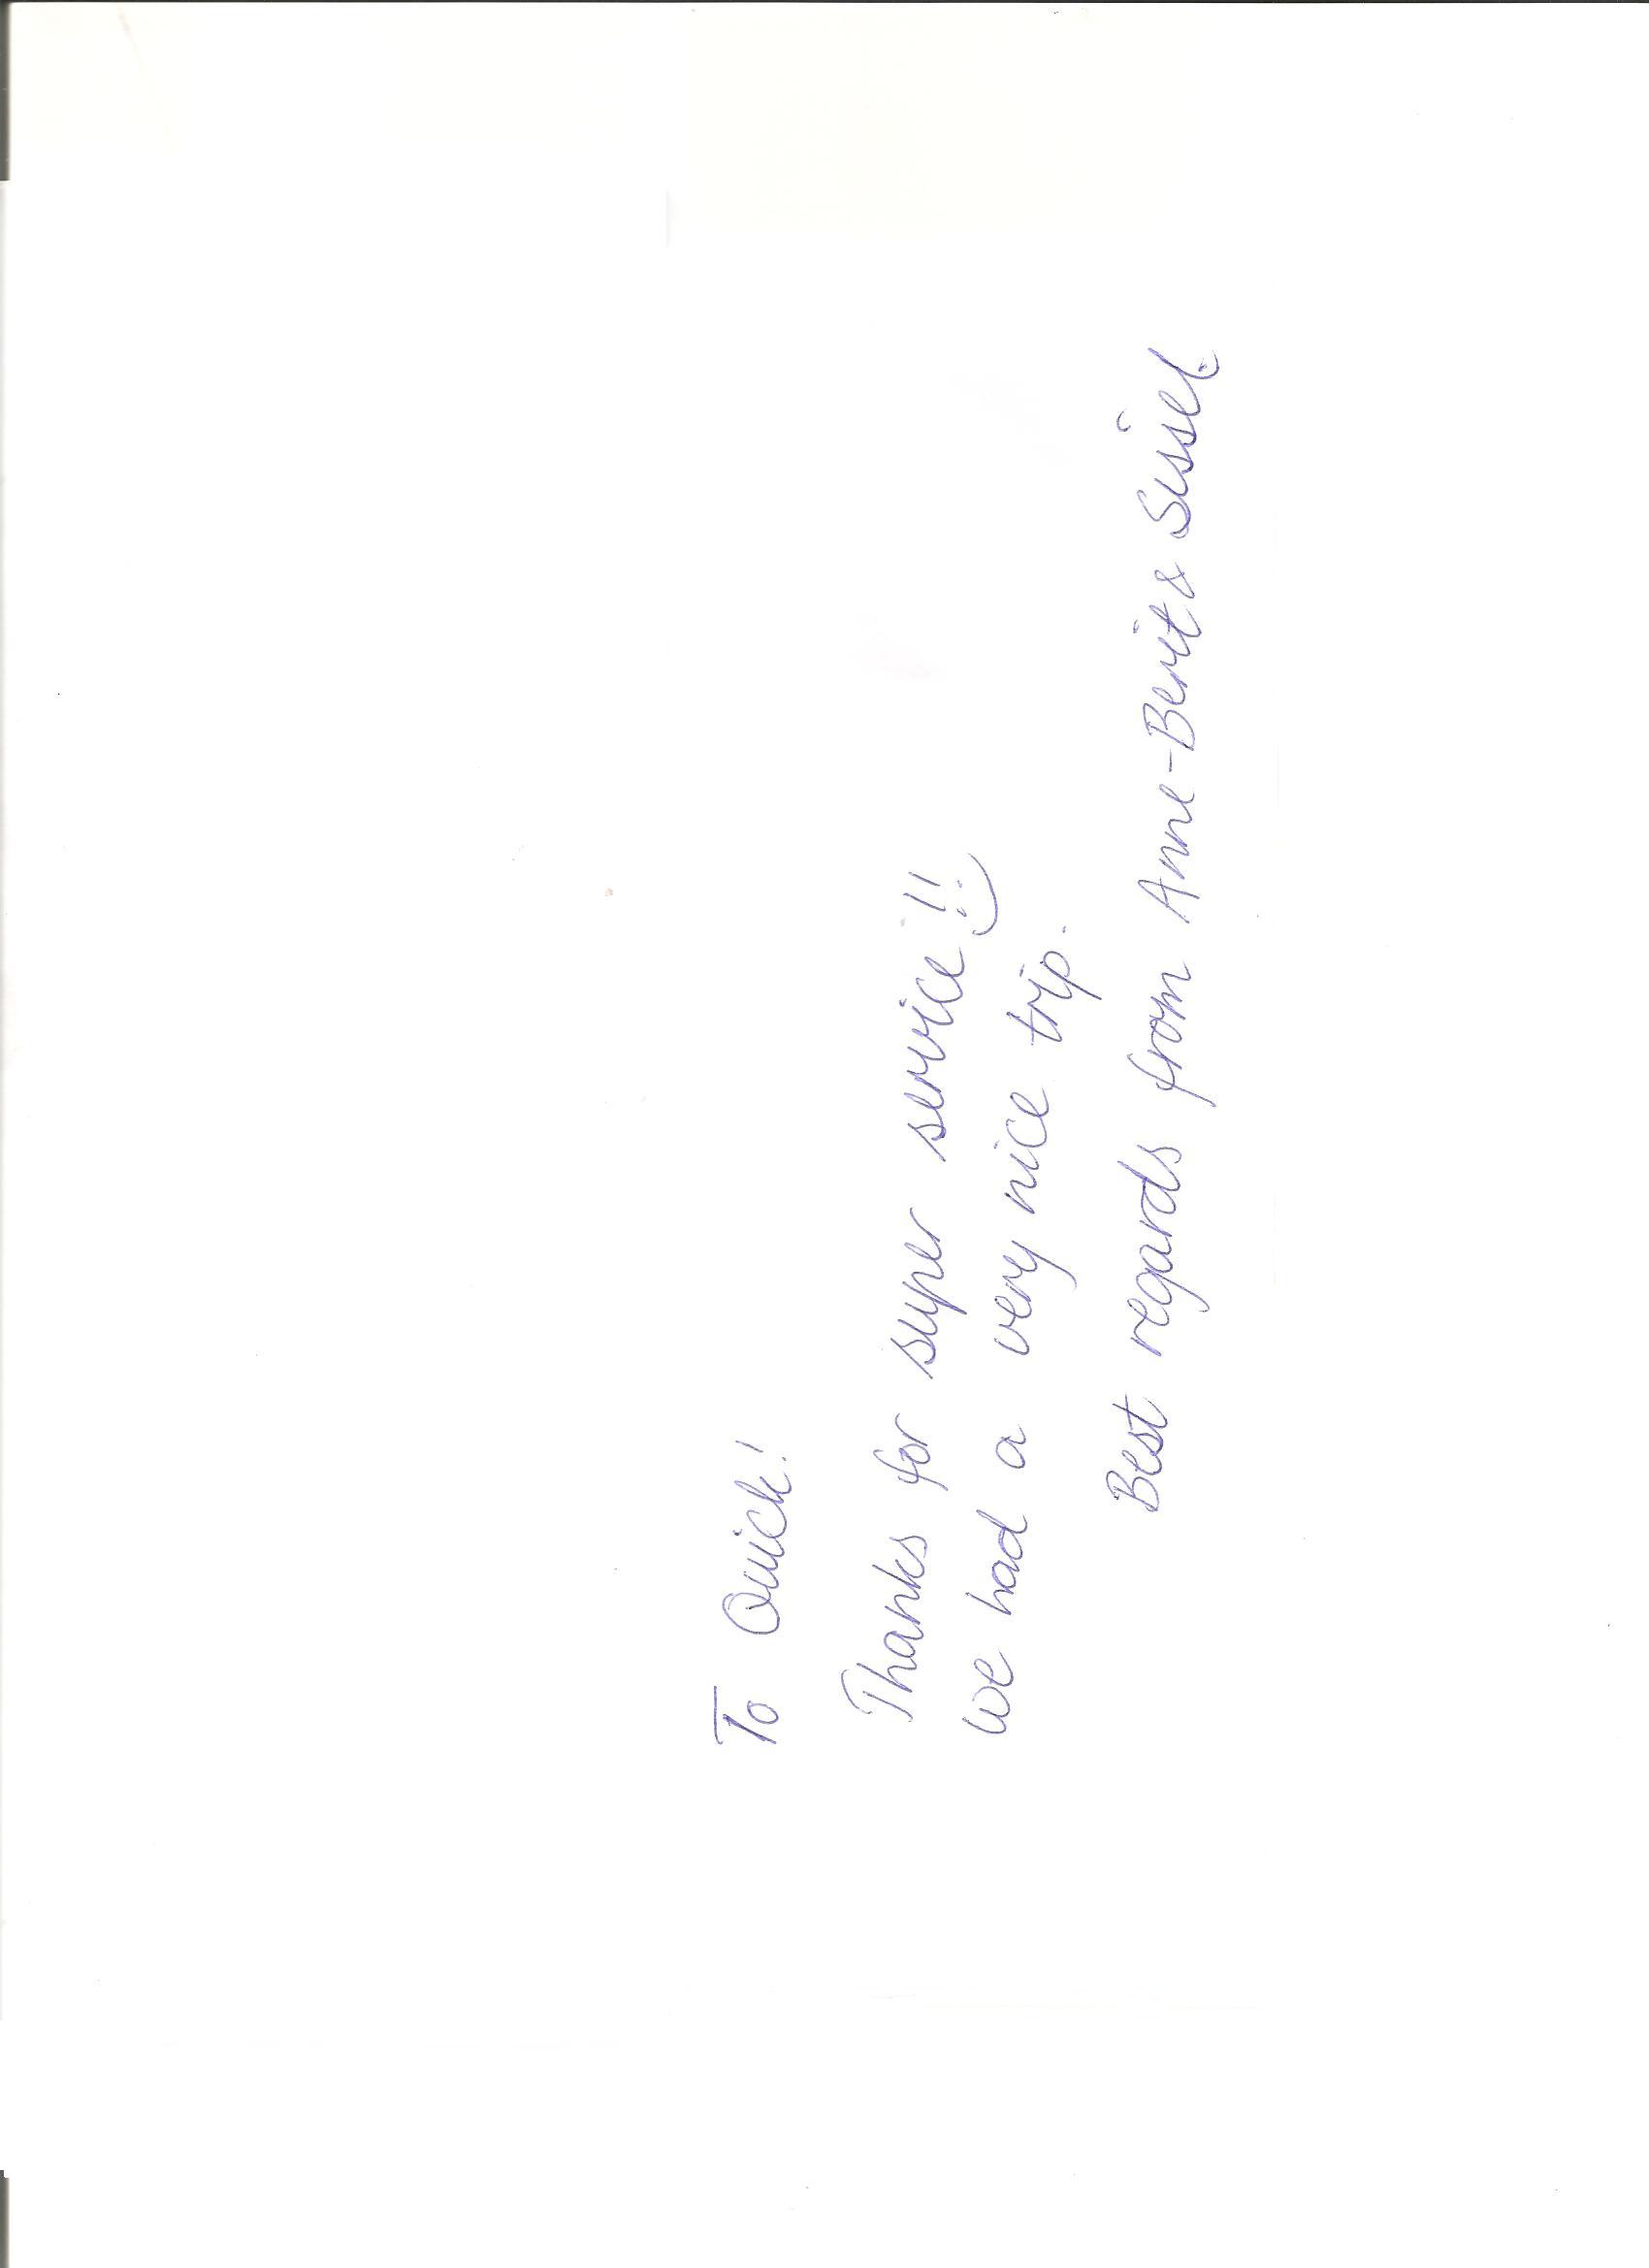 To Quick!
Thanks for super service!!
We had a very nice trip.
Best regards from Anne-Berit & Sissel.